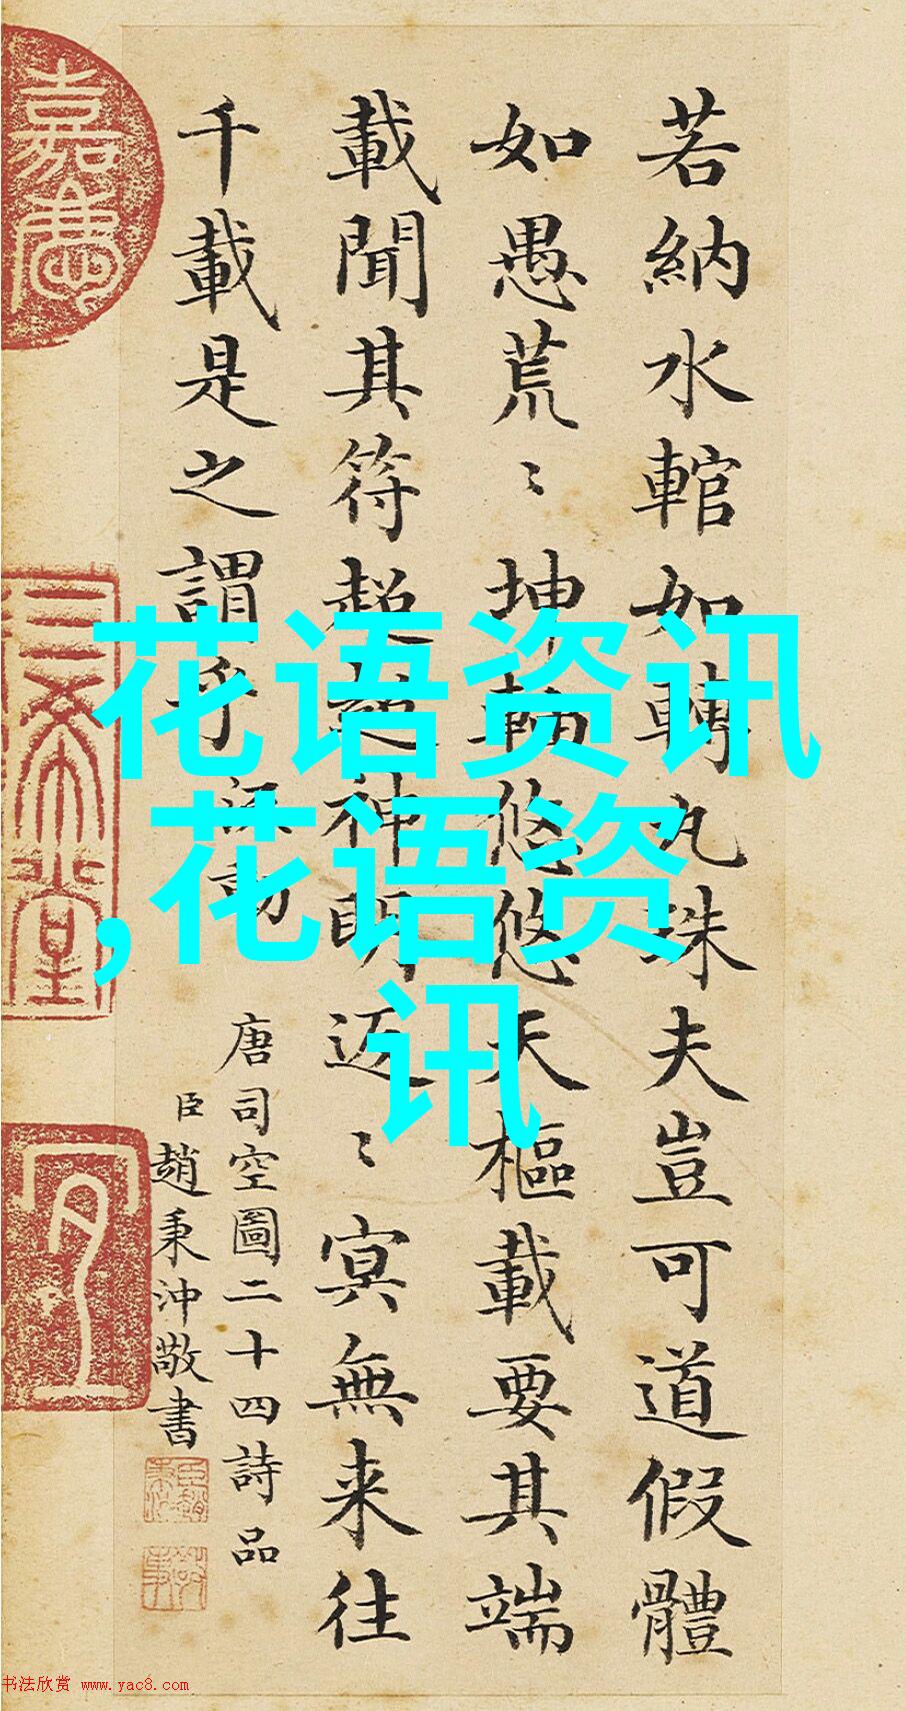 花语资讯
,花语资
讯
若納水輨如轉丸珠夫豈可道假體
如愚荒〻坤軸悠悠天樞載要其端
載聞其符超超神明返〻冥無来往
千載是之謂乎 流動
唐司空圖二十四詩品
臣趙秉沖敬書
嘉慶
书法欣赏 www.yac8.com